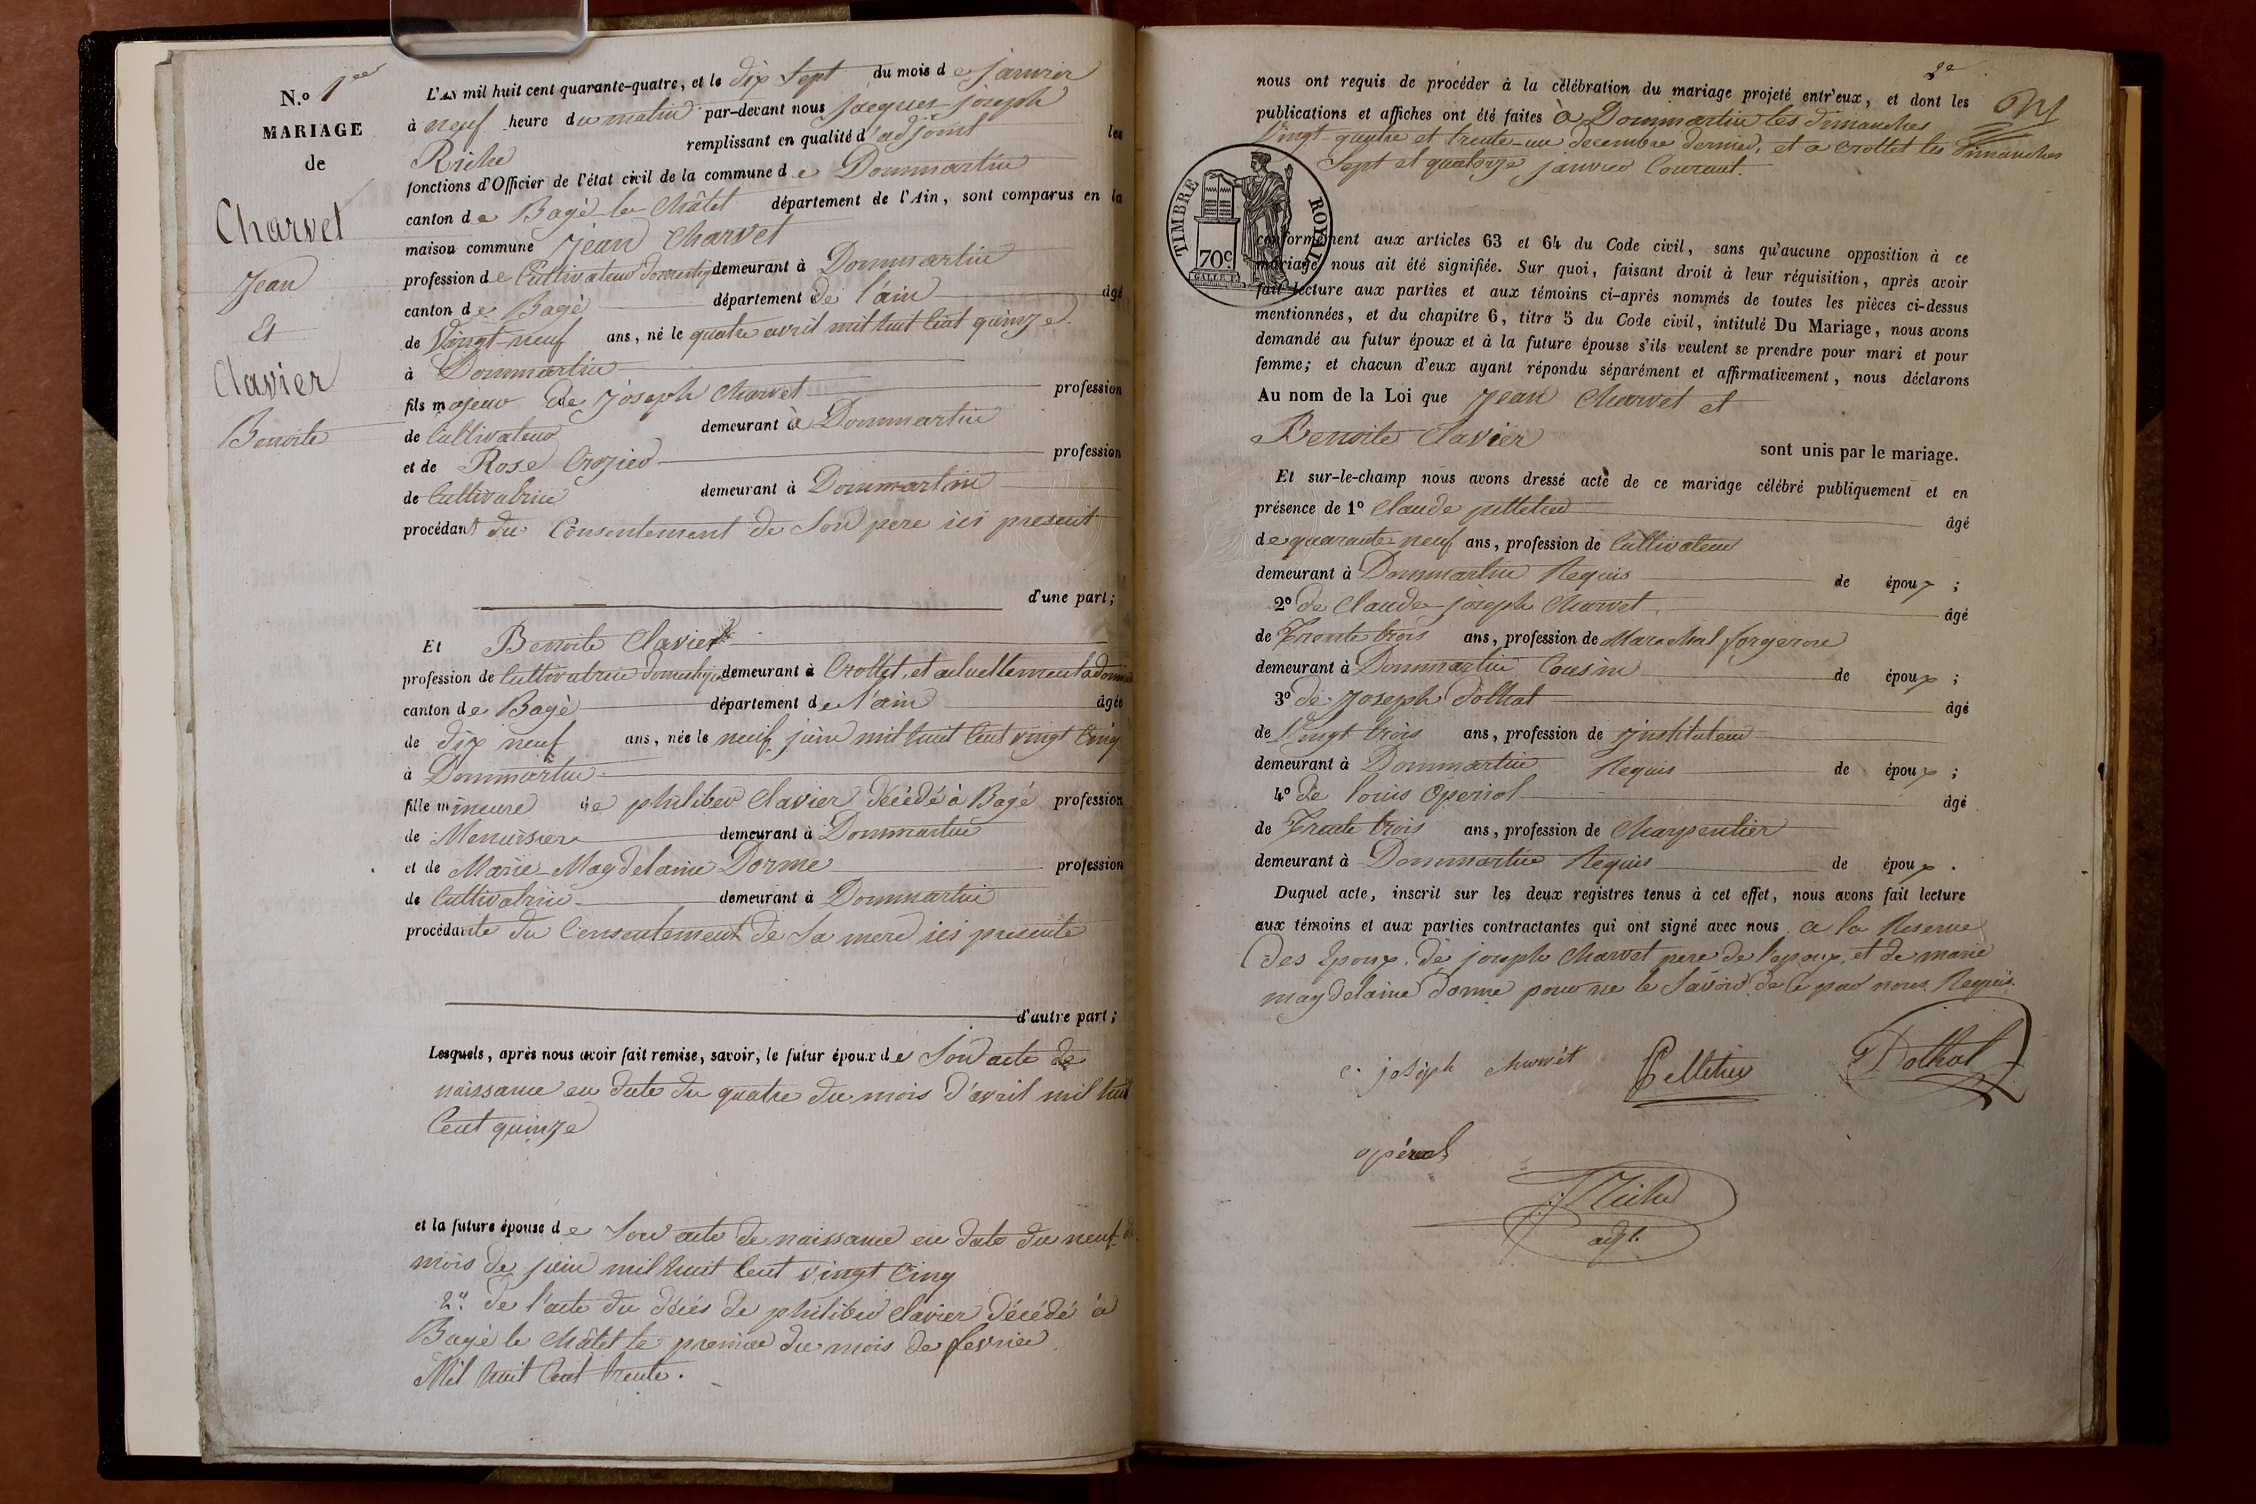 N.º 1er
MARIAGE
de
Charvet
Jean
Et
Clavier
Benoite
L'AN mil huit cent quarante-quatre, et le dix sept du mois de janvier
à neuf heure du matin par-devant nous jacques joseph
Riche remplissant en qualité d'adjoint les
fonctions d'Officier de l'état civil de la commune de Dommartin
canton de Bagé-le-Châtel département de l'Ain, sont comparus en la
maison commune Jean Charvet
profession de Cultivateur domestique demeurant à Dommartin
canton de Bagé département de l'ain âgé
de Vingt-neuf ans, né le quatre avril mil huit Cent quinze
à Dommartin
fils majeur de Joseph Charvet profession
de Cultivateur demeurant à Dommartin
et de Rose Crozier profession
de Cultivatrice demeurant à Dommartin
procédant du Consentement de Son pere ici present
d'une part;
Et Benoite Clavier
profession de Cultivatrice domestique demeurant à Crottet, et actuellement à
canton de Bagé département de l'ain âgée
de dix neuf ans, née le neuf juin mil huit Cent vingt Cinq
à Dommartin
fille mineure de philiber Clavier décédé à Bagé profession
de Menuisier demeurant à Dommartin
et de Marie-Magdelaine Dorme profession
de Cultivatrice demeurant à Dommartin
procédante du Consentement de Sa mere ici presente
d'autre part;
Lesquels, après nous avoir fait remise, savoir, le futur époux de Son acte de
naissance en date du quatre du mois d'avril mil huit
Cent quinze
et la future épouse de Son acte de naissance en date du neuf du
mois de juin mil huit Cent vingt Cinq
2º. De l'acte du décés de philiber Clavier décédé à
Bagé le Châtel le premier du mois de fevrier
Mil huit Cent trente.
2e
nous ont requis de procéder à la célébration du mariage projeté entr'eux, et dont les
publications et affiches ont été faites à Dommartin les dimanches
Vingt quatre et trente-un decembre dernier, et a Crottet les dimanches
Sept et quatorze janvier Courant.
TIMBRE ROYAL
70c
conformément aux articles 63 et 64 du Code civil, sans qu'aucune opposition à ce
mariage nous ait été signifiée. Sur quoi, faisant droit à leur réquisition, après avoir
fait lecture aux parties et aux témoins ci-après nommés de toutes les pièces ci-dessus
mentionnées, et du chapitre 6, titre 5 du Code civil, intitulé Du Mariage, nous avons
demandé au futur époux et à la future épouse s'ils veulent se prendre pour mari et pour
femme; et chacun d'eux ayant répondu séparément et affirmativement, nous déclarons
Au nom de la Loi que Jean Charvet et
Benoite Clavier sont unis par le mariage.
Et sur-le-champ nous avons dressé acte de ce mariage célébré publiquement et en
présence de 1º Claude pelletier âgé
de quarante-neuf ans, profession de Cultivateur
demeurant à Dommartin Requis de époux ;
2º de Claude-joseph Charvet âgé
de Trente trois ans, profession de Marechal forgeron
demeurant à Dommartin Cousin de époux ;
3º de Joseph Dothal âgé
de Vingt trois ans, profession de Jnstituteur
demeurant à Dommartin Requis de époux ;
4º de louis Operiol âgé
de Trente trois ans, profession de Charpentier
demeurant à Dommartin Requis de époux .
Duquel acte, inscrit sur les deux registres tenus à cet effet, nous avons fait lecture
aux témoins et aux parties contractantes qui ont signé avec nous a la Reserve
des Epoux. de joseph Charvet pere de l'epoux, et de marie
magdelaine dorme pour ne le Savoir de Ce par nous Requis.
C. joseph charvét Pelletier Dothal
opériol
J Riche
adjt.